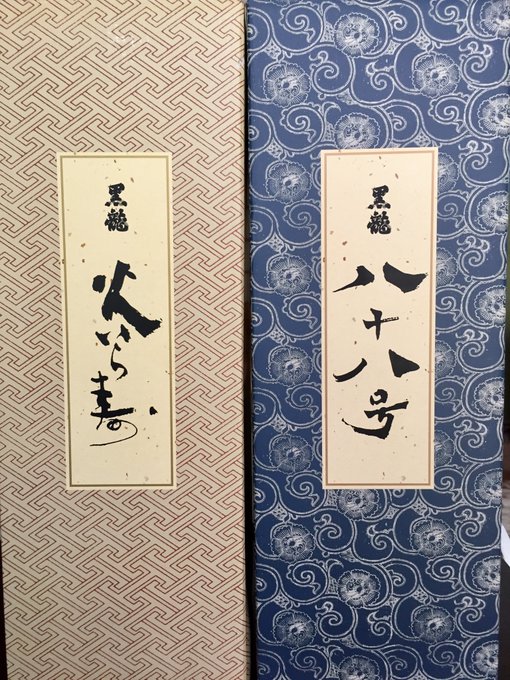 黒龍
火いら寿
黒龍
八十八号